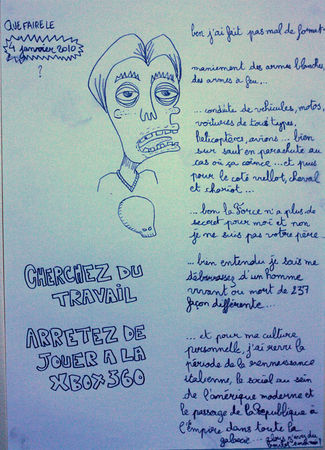 QUE FAIRE LE
4 janvier 2010
?
CHERCHEZ DU
TRAVAIL
ARRETEZ DE
JOUER A LA
XBOX 360
ben j'ai fait pas mal de format°
maniement des armes blanches,
des armes à feu,...
... conduite de véhicules, motos,
voitures de tous types,
hélicoptères, avions... bien
sur saut en parachute au
cas où ça coince... et puis
pour le coté vieillot, cheval
et chariot...
... bon la Force n'a plus de
secret pour moi et non
je ne suis pas votre père...
... bien entendu je sais me
débarassez d'un homme
vivant ou mort de 237
façon différente...
... et pour ma culture
personnelle, j'ai revu la
période de la rennaissance
italienne, le social au sein
de l'amérique moderne et
le passage de la République à
l'Empire dans toute la
galaxie...